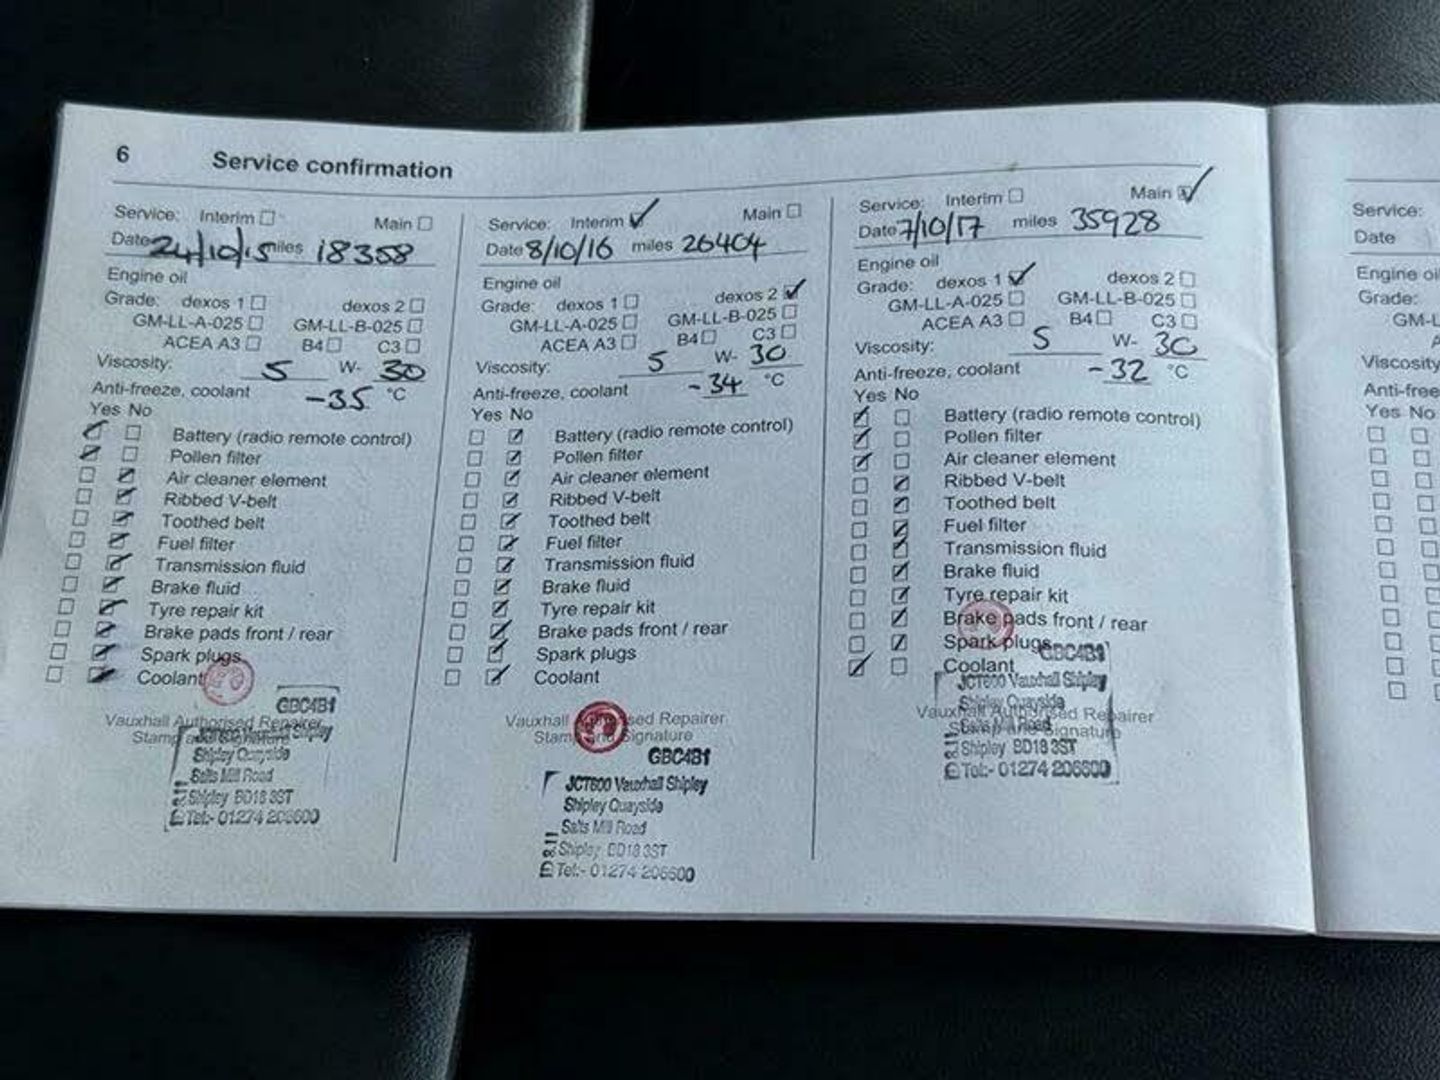 6 Service confirmation
Service: Interim Main
Date 24/10/15 miles 18358
Engine oil
Grade: dexos 1 dexos 2
GM-LL-A-025 GM-LL-B-025
ACEA A3 B4 C3
Viscosity: 5 W- 30
Anti-freeze, coolant -35 °C
Yes No
Battery (radio remote control)
Pollen filter
Air cleaner element
Ribbed V-belt
Toothed belt
Fuel filter
Transmission fluid
Brake fluid
Tyre repair kit
Brake pads front / rear
Spark plugs
Coolant
GBC4B1
Vauxhall Authorised Repairer
Stamp and Signature
JCT600 Vauxhall Shipley
Shipley Quayside
Salts Mill Road
Shipley BD18 3ST
Tel:- 01274 206600
Service: Interim Main
Date 8/10/16 miles 26404
Engine oil
Grade: dexos 1 dexos 2
GM-LL-A-025 GM-LL-B-025
ACEA A3 B4 C3
Viscosity: 5 W- 30
Anti-freeze, coolant -34 °C
Yes No
Battery (radio remote control)
Pollen filter
Air cleaner element
Ribbed V-belt
Toothed belt
Fuel filter
Transmission fluid
Brake fluid
Tyre repair kit
Brake pads front / rear
Spark plugs
Coolant
Vauxhall Authorised Repairer
Stamp and Signature
GBC4B1
JCT600 Vauxhall Shipley
Shipley Quayside
Salts Mill Road
Shipley BD18 3ST
Tel:- 01274 206600
Service: Interim Main
Date 7/10/17 miles 35928
Engine oil
Grade: dexos 1 dexos 2
GM-LL-A-025 GM-LL-B-025
ACEA A3 B4 C3
Viscosity: 5 W- 30
Anti-freeze, coolant -32 °C
Yes No
Battery (radio remote control)
Pollen filter
Air cleaner element
Ribbed V-belt
Toothed belt
Fuel filter
Transmission fluid
Brake fluid
Tyre repair kit
Brake pads front / rear
Spark plugs
Coolant
GBC4B1
JCT600 Vauxhall Shipley
Shipley Quayside
Vauxhall Authorised Repairer
Salts Mill Road
Stamp and Signature
Shipley BD18 3ST
Tel:- 01274 206600
Service:
Date
Engine oil
Grade:
GM-L
Viscosity
Anti-free
Yes No